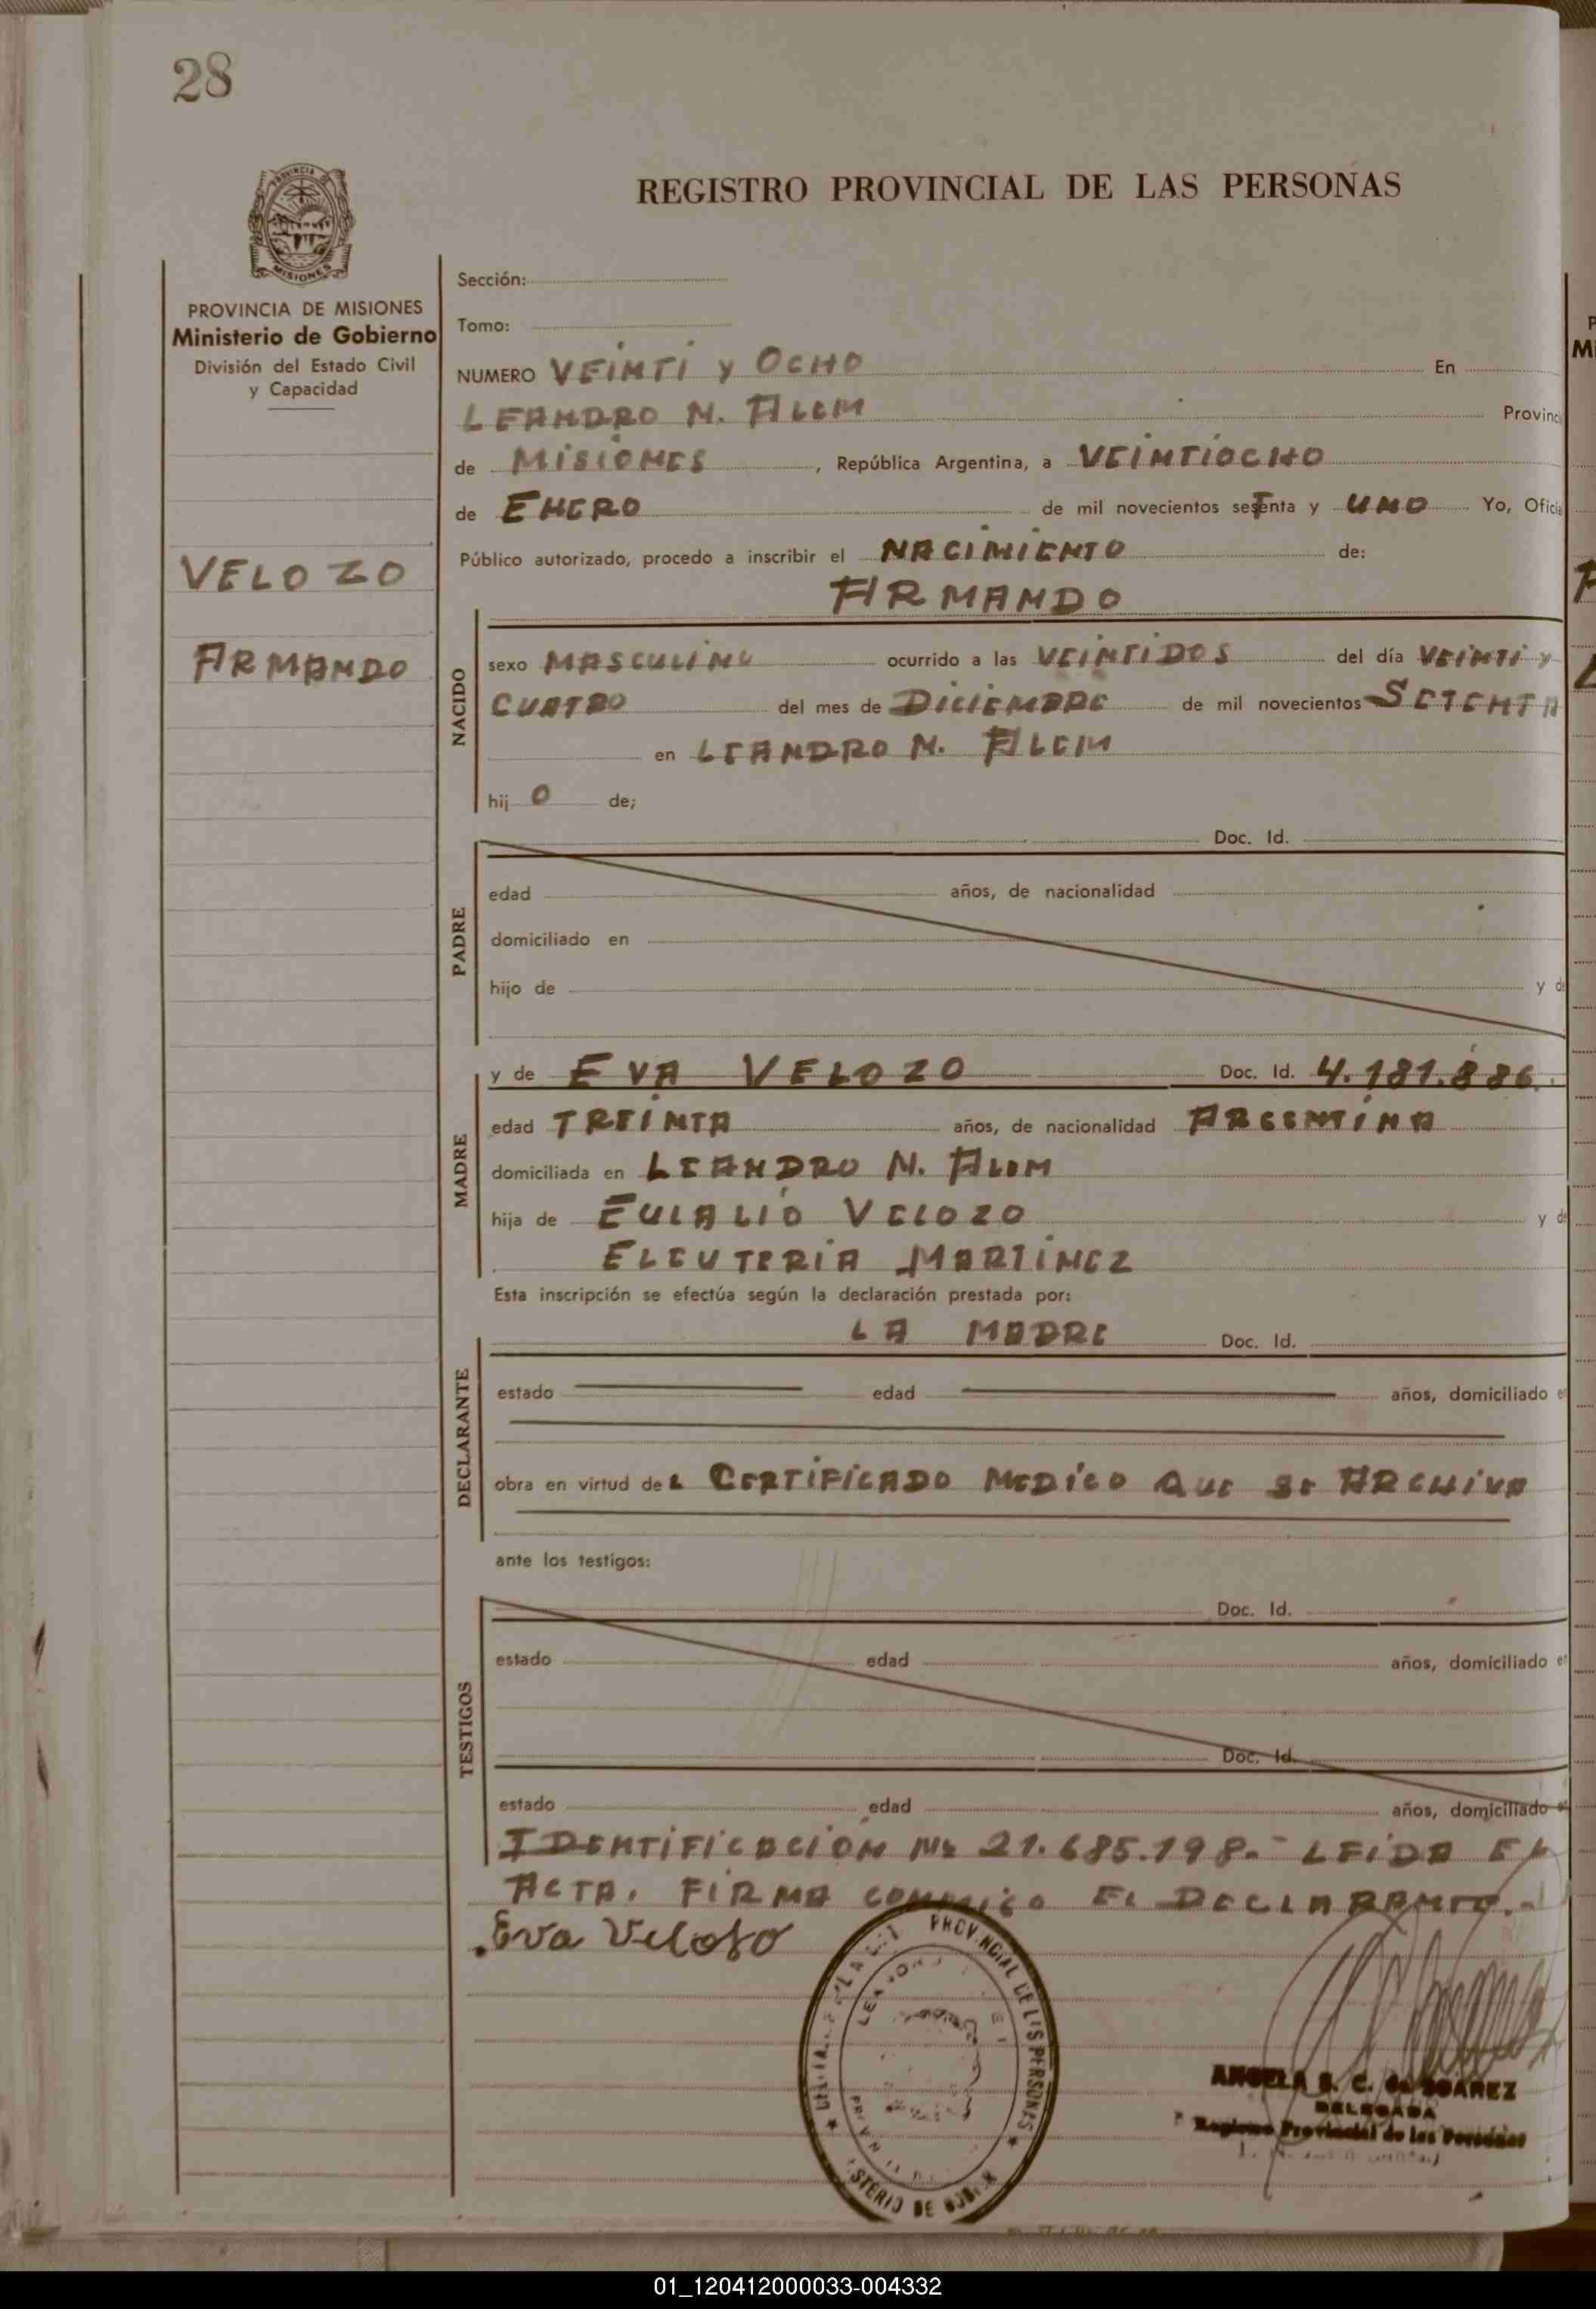 28
PROVINCIA DE
MISIONES
REGISTRO PROVINCIAL DE LAS PERSONAS
PROVINCIA DE MISIONES
Ministerio de Gobierno
División del Estado Civil
y Capacidad
VELOZO
ARMANDO
Sección:
Tomo:
NUMERO VEINTI y OCHO En
LEANDRO N. ALEM Provinc
de MISIONES, República Argentina, a VEINTIOCHO
de ENERO de mil novecientos setenta y UNO Yo, Ofici
Público autorizado, procedo a inscribir el NACIMIENTO de:
ARMANDO
NACIDO
sexo MASCULINO ocurrido a las VEINTIDOS del día VEINTI y
CUATRO del mes de DICIEMBRE de mil novecientos SETENTA
en LEANDRO N. ALEM
hij O de;
PADRE
Doc. Id.
edad años, de nacionalidad
domiciliado en
hijo de y de
MADRE
y de EVA VELOZO Doc. Id. 4.181.886.
edad TREINTA años, de nacionalidad ARGENTINA
domiciliada en LEANDRO N. ALEM
hija de EULALIO VELOZO y de
ELEUTERIA MARTINEZ
Esta inscripción se efectúa según la declaración prestada por:
DECLARANTE
LA MADRE Doc. Id.
estado edad años, domiciliado en
obra en virtud deL CERTIFICADO MEDICO QUE SE ARCHIVA
ante los testigos:
TESTIGOS
Doc. Id.
estado edad años, domiciliado en
Doc. Id.
estado edad años, domiciliado en
IDENTIFICACION Nº 21.685.198.- LEIDA EL
ACTA, FIRMA CONMIGO EL DECLARANTE.-
Eva Veloso
PROVINCIAL DE LAS PERSONAS
ANGELA S. C. de SUAREZ
DELEGADA
Registro Provincial de las Personas
01_120412000033-004332